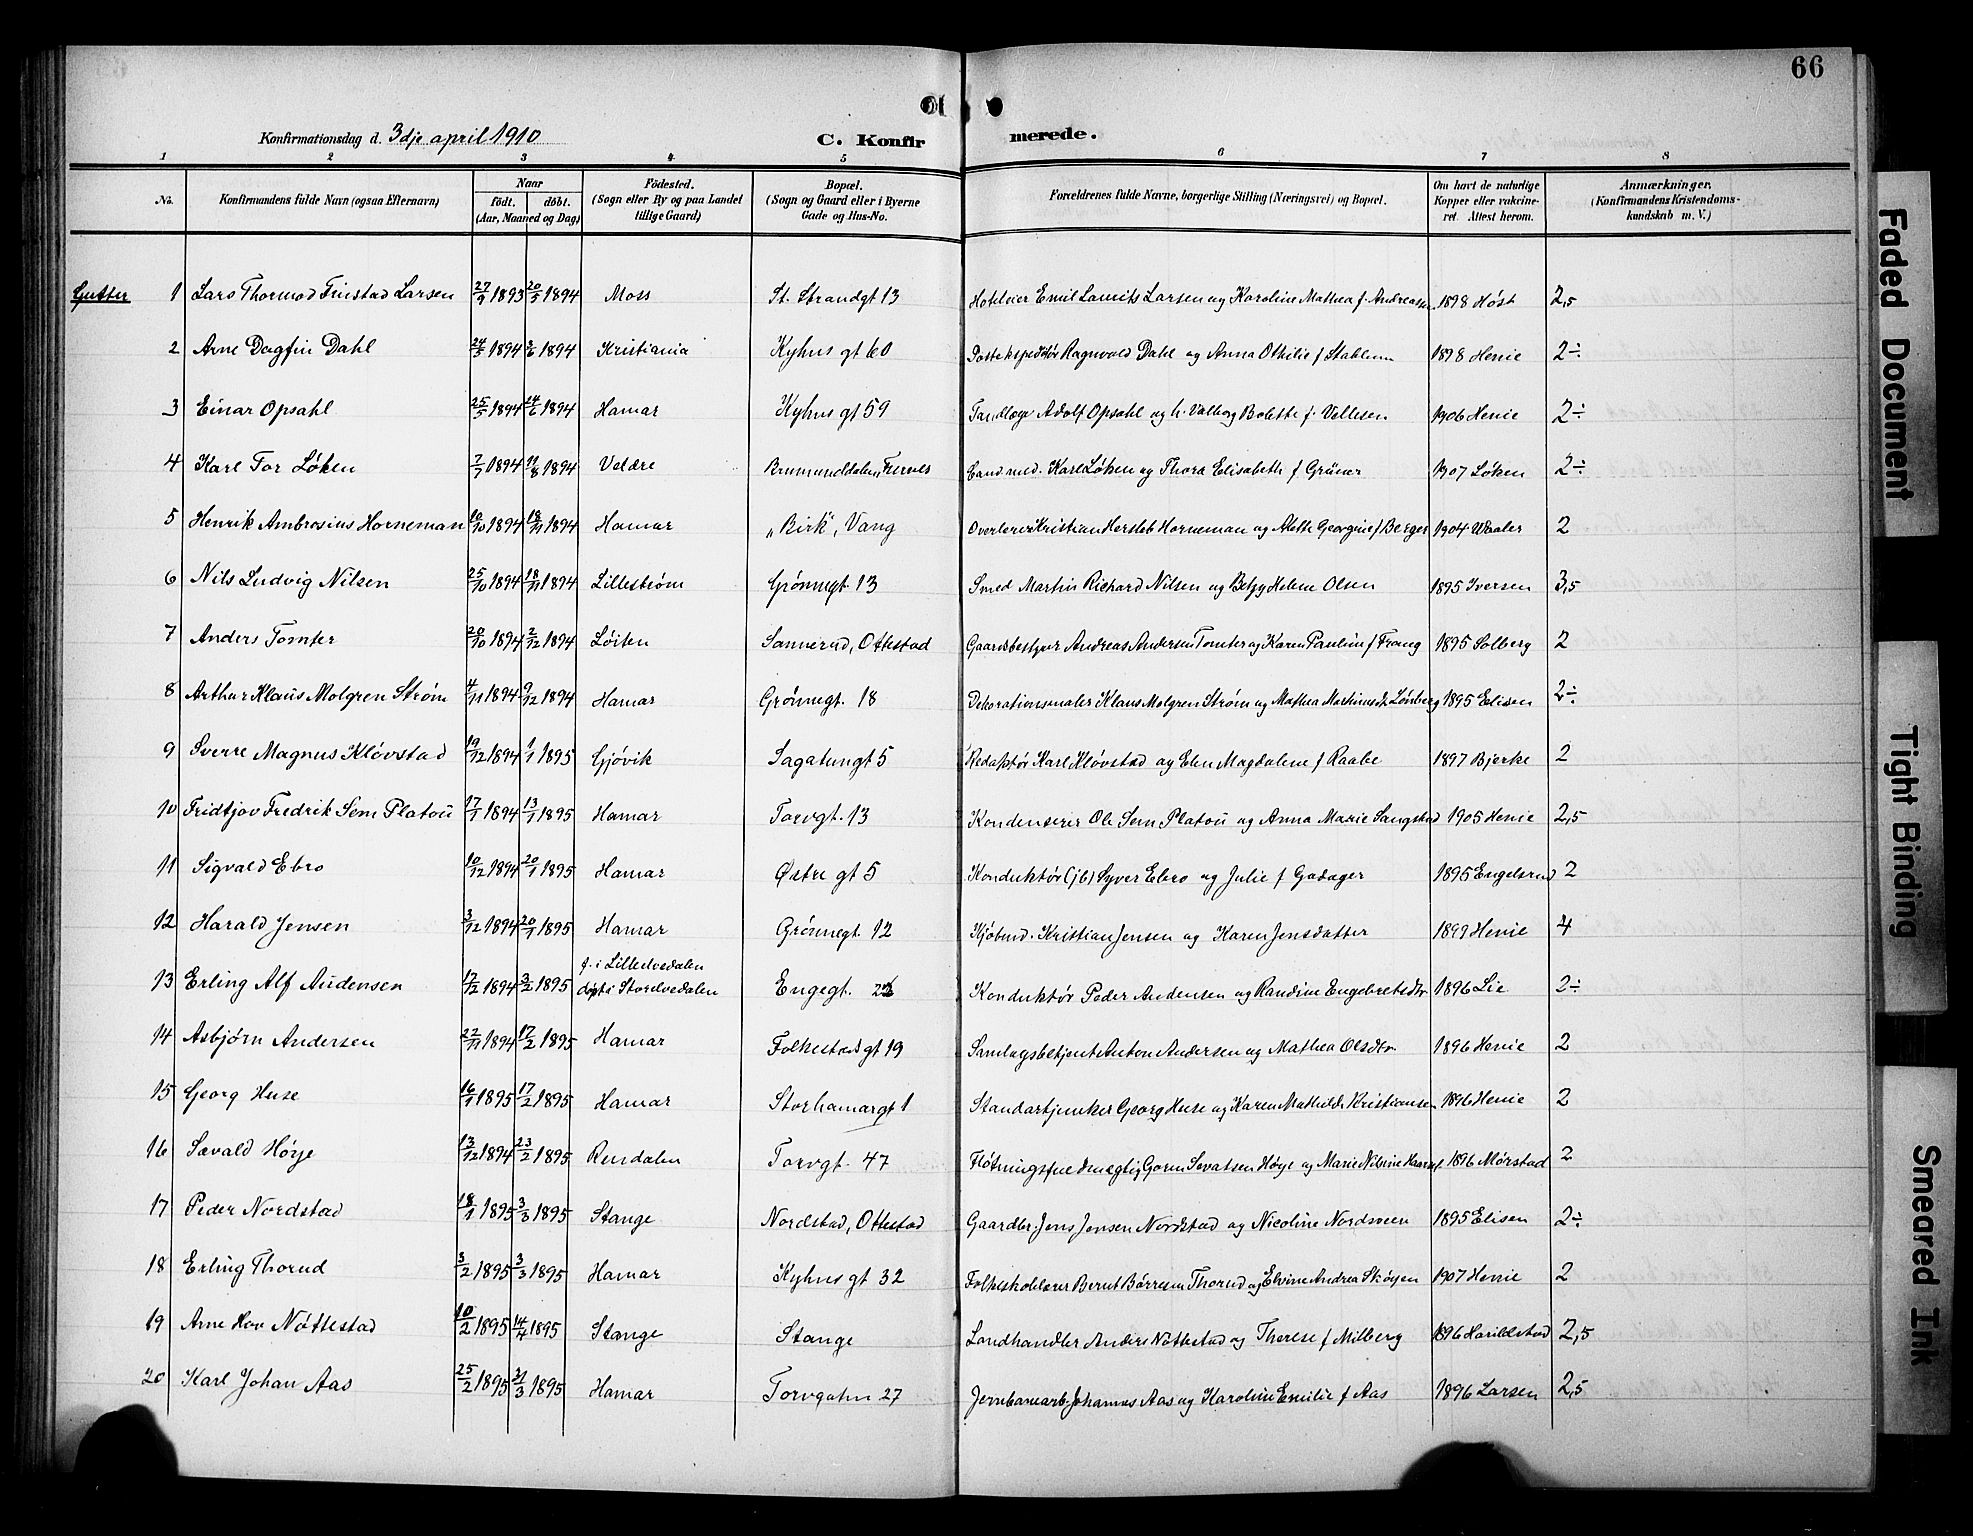 66
Konfirmationsdag d. 3dje april 1910 C. Konfirmerede.
1 2 3 4 5 6 7 8
No. Konfirmandens fulde Navn (ogsaa Efternavn) Naar født. døbt. (Aar, Maaned og Dag) Fødested. (Sogn eller By og paa Landet tillige Gaard) Bopæl. (Sogn og Gaard eller i Byerne Gade og Hus-No. Forældrenes fulde Navne, borgerlige Stilling (Næringsvei) og Bopæl. Om havt de naturlige Kopper eller vakcineret. Attest herom. Anmærkninger. (Konfirmandens Kristendomskundskab m. V.)
Gutter 1 Lars Thormod Finstad Larsen 27/9 1893 20/5 1894 Moss St. Strandgt 13 Hoteleier Emil Laurits Larsen og Karoline Mathea f. Andreassen 1898 Høst 2,5
2 Arne Dagfin Dahl 24/5 1894 3/6 1894 Kristiania Kyhus gt 60 Postekspeditør Ragnvald Dahl og Anna Othilie f Stablum 1898 Henie 2÷
3 Einar Opsahl 25/5 1894 24/6 1894 Hamar Kyhus gt 59 Tandlæge Adolf Opsahl og h. Valborg Bolette f. Vellesen 1906 Henie 2÷
4 Karl Tor Løken 7/7 1894 11/8 1894 Veldre Brumunddalen, Furnes Cand med. Karl Løken og Thora Elisabeth f Grüner 1907 Løken 2÷
5 Henrik Ambrosius Horneman 10/10 1894 18/11 1894 Hamar „Birk", Vang Overlærer Kristian Hersleb Horneman og Aleth Georgine f Berger 1904 Waaler 2
6 Nils Ludvig Nilsen 25/10 1894 18/11 1894 Lillestrøm Grønnegt 13 Smed Martin Richard Nilsen og Betzy Helene Olsen 1895 Iversen 3,5
7 Anders Tomter 20/10 1894 2/12 1894 Løiten Sannerud, Ottestad Gaardsbestyrer Andreas Andersen Tomter og Karen Pauline f Frang 1895 Solberg 2
8 Arthur Klaus Molgren Strøm 4/11 1894 9/12 1894 Hamar Grønnegt. 18 Dekorationsmaler Klaus Molgren Strøm og Mathea Martinusdt. Lønberg 1895 Elisen 2÷
9 Sverre Magnus Kløvstad 19/12 1894 1/1 1895 Gjøvik Sagatungt 5 Redaktør Karl Kløvstad og Elen Magdalene f Raabe 1897 Bjerke 2
10 Fridtjov Fredrik Sem Platou 17/1 1894 13/1 1895 Hamar Torvgt. 13 Kondenserer Ole Sem Platou og Anna Marie Sangstad 1905 Henie 2,5
11 Sigvald Ebro 10/12 1894 20/1 1895 Hamar Østre gt 5 Konduktør (jb) Syver Ebro og Julie f Gadager 1895 Engelsrud 2
12 Harald Jensen 3/12 1894 20/1 1895 Hamar Grønnegt. 12 Kjøbmd. Kristian Jensen og Karen Jensdatter 1899 Henie 4
13 Erling Alf Audensen 17/12 1894 3/2 1895 f. i Lilleelvedalen døpt i Storelvedalen Engegt. Konduktør Peder Audensen og Randine Engebretsdtr 1896 Lie 2÷
14 Asbjørn Andersen 22/11 1894 17/2 1895 Hamar Folkestadsgt 19 Samlagsbetjent Anton Andersen og Mathea Olsdtr. 1896 Henie 2
15 Georg Huse 16/1 1895 17/2 1895 Hamar Storhamargt 1 Standartjunker Georg Huse og Karen Mathilde Kristiansen 1896 Henie 2
16 Sævald Høye 13/12 1894 23/2 1895 Rendalen Torvgt. 47 Fløtningsfuldmægtig Gorm Sevatsen Høye og Marie Nilsine 1896 Mørstad 2
17 Peder Nordstad 18/1 1895 3/3 1895 Stange Nordstad, Ottestad Gaardbr. Jens Jensen Nordstad og Nicoline Nordsveen 1895 Elisen 2÷
18 Erling Thorud 3/2 1895 3/3 1895 Hamar Kyhus gt 32 Folkeskolelærer Bernt Børresen Thorud og Elvine Andrea Skøyen 1907 Henie 2
19 Arne Hov Nøttestad 10/2 1895 14/4 1895 Stange Stange Landhandler Anders Nøttestad og Therese f Milberg 1896 Harildstad 2,5
20 Karl Johan Aas 25/2 1895 31/3 1895 Hamar Torvgaten 27 Jernbanearb. Johannes Aas og Karoline Emilie f Aas 1896 Larsen 2,5
Faded Document
Tight Binding
Smeared Ink